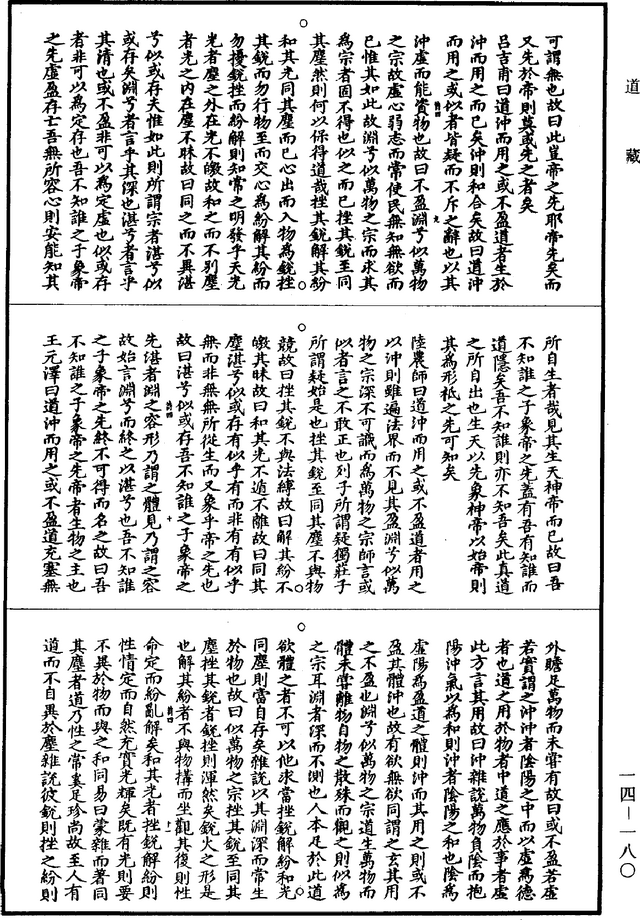 道藏
可謂無也故曰此豈帝之先耶帝先矣而
又先於帝則莫或先之者矣
呂吉甫曰道沖而用之或不盈道者生於
沖而用之而已矣沖則和合矣故曰道沖
而用之或似者皆疑而不斥之辭也以其
沖虛而能資物也故曰不盈淵兮似萬物
之宗故虛心弱志而常使民無知無欲而
已惟其如此故淵兮似萬物之宗而求其
為宗者固不得也似之而已挫其銳至同
其塵然則何以保得道哉挫其銳解其紛
和其光同其塵而已心出而入物為銳挫
其銳而勿行物至而交心為紛解其紛而
勿擾銳挫而紛解則知常之明發乎天光
光者塵之外在光不皦故和之而不別塵
者光之內在塵不昧故曰同之而不異湛
兮似或存夫惟如此則所謂宗者湛兮似
或存矣淵兮者言乎其深也湛兮者言乎
其清也或不盈非可以為定虛也似或存
者非可以為定存也吾不知誰之子象帝
之先虛盈存亡吾無所容心則安能知其
所自生者哉見其生天神帝而已故曰吾
不知誰之子象帝之先蓋有吾有知誰而
道隱矣吾不知誰則亦不知吾矣此真道
之所自出也生天以先象神帝以始帝則
其為形柢之先可知矣
陸農師曰道沖而用之或不盈道者用之
以沖則雖遍法界而不見其盈淵兮似萬
物之宗深不可識而為萬物之宗師言或
似者言之不敢正也列子所謂疑獨莊子
所謂疑始是也挫其銳至同其塵不與物
競故曰挫其銳不與法縛故曰解其紛不
皦其昧故曰和其光不遁不離故曰同其
塵湛兮似或存有似乎有而非有有似乎
無而非無無所從生而又象乎帝之先也
故曰湛兮似或存吾不知誰之子象帝之
先湛者淵之容形乃謂之體見乃謂之容
故始言淵兮而終之以湛兮也吾不知誰
之子象帝之先終不可得而名之故曰吾
不知誰之子象帝之先帝者生物之主也
王元澤曰道沖而用之或不盈道充塞無
外贍足萬物而未嘗有故曰或不盈若虛
若實謂之沖沖者陰陽之中而以虛為德
者也道之用於物者中道之應於事者虛
此方言其用故曰沖雜說萬物負陰而抱
陽沖氣以為和則沖者陰陽之和也陰為
虛陽為盈道之體則沖而其用之則或不
盈其體沖也故有欲無欲同謂之玄其用
之不盈也淵兮似萬物之宗道生萬物而
體未嘗離物自物之散殊而觀之則似為
之宗耳淵者深而不測也人本足於此道
欲體之者不可以他求當挫銳解紛和光
同塵則當自存矣雜說以其淵深而常生
於物也故曰似萬物之宗挫其銳至同其
塵挫其銳者銳挫則渾然矣銳火之形是
也解其紛者不與物搆而坐觀其復則性
命定而紛亂解矣和其光者挫銳解紛則
性情定而自然充實光輝矣既有光則要
不異於物而與之和同易曰蒙雜而著同
其塵者道乃性之常奚足珍尚故至人有
道而不自異於塵雜說彼銳則挫之紛則
一四—一八〇